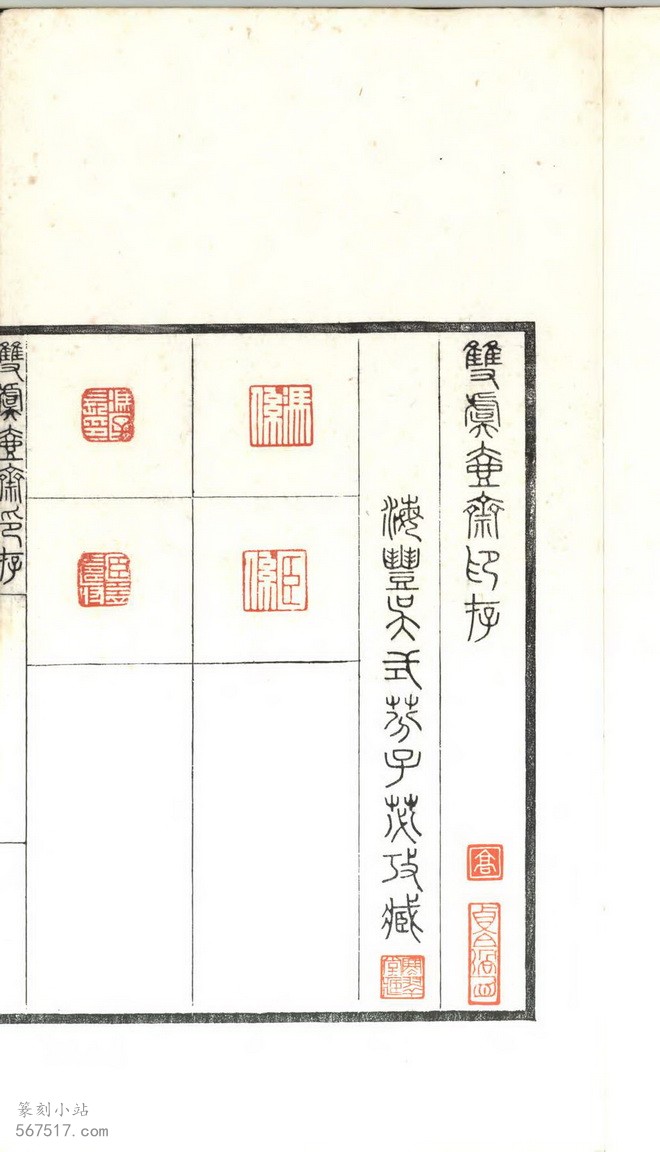 雙虞壺齋印存
海豐吳式芬子苾攷藏
馮係
臣係
雙虞壺齋印存
篆刻小站
567517.com